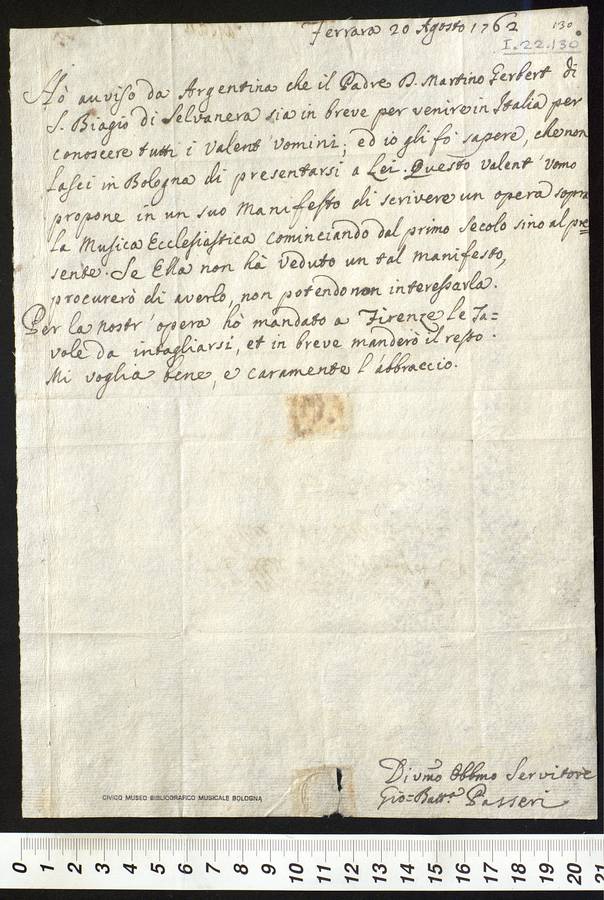 Ferrara 20 Agosto 1762
130
I.22.130
Hò auviso da Argentina che il Padre D. Martino Gerbert di
S. Biagio di Selvanera sia in breve per venire in Italia per
conoscere tutti i valent' vomini; ed io gli fò sapere, che non
lasci in Bologna di presentarsi a Lei. Questo valent' vomo
propone in un suo Manifesto di scrivere un opera sopra
la Musica Ecclesiastica cominciando dal primo Secolo sino al pre=
sente. Se Ella non hà veduto un tal manifesto,
procurerò di averlo, non potendo non interessarla.
Per la nostr' opera hò mandato a Firenze le Ta=
vole da intagliarsi, et in breve manderò il resto.
Mi voglia bene, e caramente l'abbraccio.
Divmo Obbmo Servitore
Gio=Batta Passeri
CIVICO MUSEO BIBLIOGRAFICO MUSICALE BOLOGNA
0 1 2 3 4 5 6 7 8 9 10 11 12 13 14 15 16 17 18 19 20 21